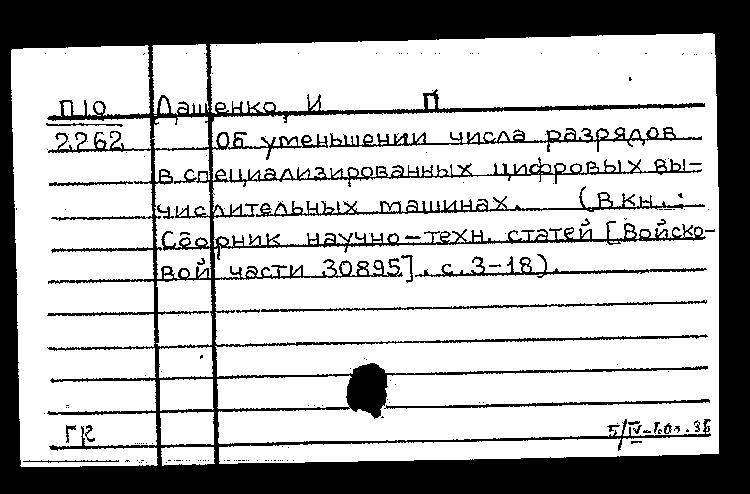 П10 Дащенко, И П
2262 Об уменьшении числа разрядов
в специализированных цифровых вы-
числительных машинах. (В кн.:
Сборник научно-техн. статей [Войско-
вой части 30895]. с. 3-18).
ГК